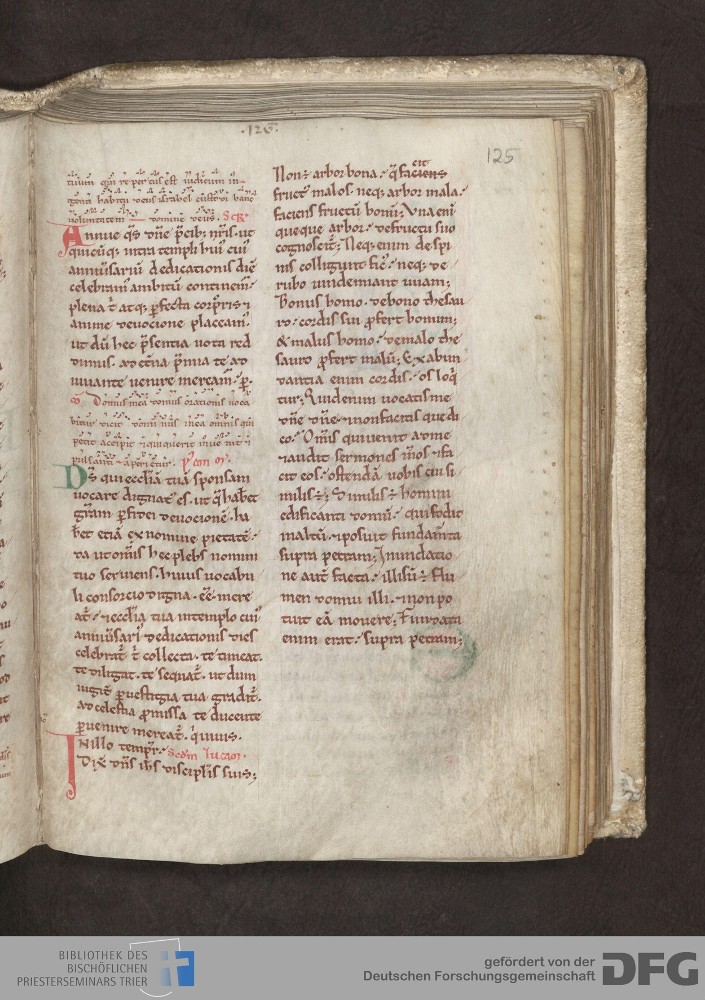 ·126·
125
tuum q̄m repertus est iudicium in
gentē habitū deus israhel custodi hanc
uoluntatem domine deus. Secr̄.
Annue qs̄ dn̄e p̄cib; nr̄is. ut
quicūq; intra templi huī cuī
anniūsariū dedicationis diē
celebram̄ ambitū continem̄
plena t̄ atq; ꝑfecta corporis ⁊
anime deuocione placeam̄.
ut dū hec p̄sentia uota red
dimus. ad et̄na p̄mia te ad
iuuante uenire meream̄. ꝑ.
Co Domus mea domus orationis uoca
bitur dicit dominus in ea omnis qui
petit accipit ⁊ qui querit inuenit ⁊
pulsanti aperietur. p̄ com̄
Ds̄ qui eccl̄iā tuā sponsam
uocare dignat̄ es. ut q̄ hab&
gr̄am ꝑ fidei deuocionē. ha
b&et etiā ex nomine pietatē.
da ut om̄is hec plebs nomini
tuo seruiens. huius uocabu
li consorcio digna. ēē mere
at̄. ⁊ eccl̄ia tua in templo cuī
anniūsarī dedicationis dies
celebrat̄ t̄ collecta. te timeat.
te diligat. te sequat̄. ut dum
iugit̄ ꝑ uestigia tua gradit̄.
ad celestia ꝓmissa te ducente
ꝑuenire mereat̄. q̄ uiuis.
In illo tempr̄. Scd̄m lucam.
Dix̄ dn̄s ih̄s discipl̄is suis;
Non ÷ arbor bona. q̄ faciens
cit
fruct̄ malos. neq; arbor mala.
faciens fructū bonū; Vna eni
queque arbor. de fructu suo
cognoscit̄; Neq; enim de spi
nis colligunt fic̄. neq; de
rubo uindemiant uuam;
Bonus homo. de bono thesau
ro. cordis sui ꝓfert bonum;
& malus homo. de malo the
sauro ꝓfert malū; Ex abun
dantia enim cordis. os loq̄
tur; Quid enim uocatis me
dn̄e dn̄e. ⁊ non facitis que di
co. Om̄is qui uenit ad me
⁊ audit sermones m̄os. ⁊ fa
cit eos. ostendā uobis cui si
milis ÷; Similis ÷ homini
edificanti domū. qui fodit
in altū. ⁊ posuit fundam̄ta
supra petram; Inundatio
ne aut̄ facta. illisū ÷ flu
men domui illi. ⁊ non po
tuit eā mouere; Fundata
enim erat. supra petram;
BIBLIOTHEK DES
BISCHÖFLICHEN
PRIESTERSEMINARS TRIER
gefördert von der
Deutschen Forschungsgemeinschaft
DFG